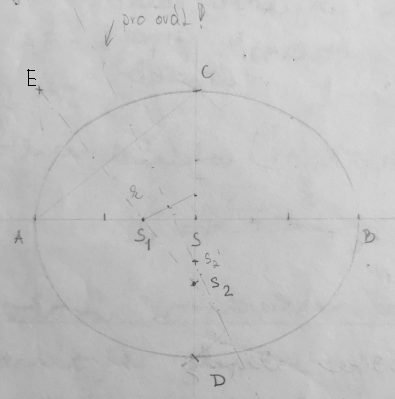 pro ovál!
E
C
A
S₁
S
B
S₂'
S₂
D